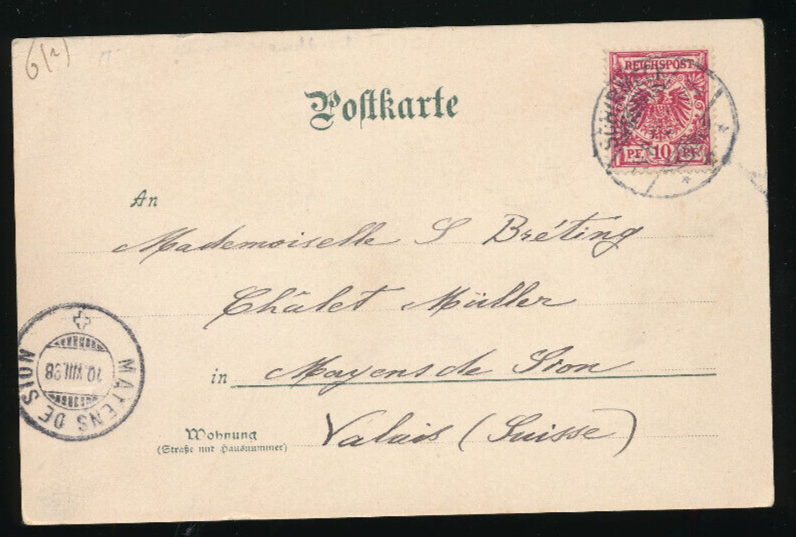 6(2)
Postkarte
REICHSPOST
PF 10 PF
SCHIRM
An
Mademoiselle S Bréting
Châlet Müller
in Mayens de Sion
Valais (Suisse)
Wohnung
(Straße und Hausnummer)
MAYENS DE SION
10.VIII.98